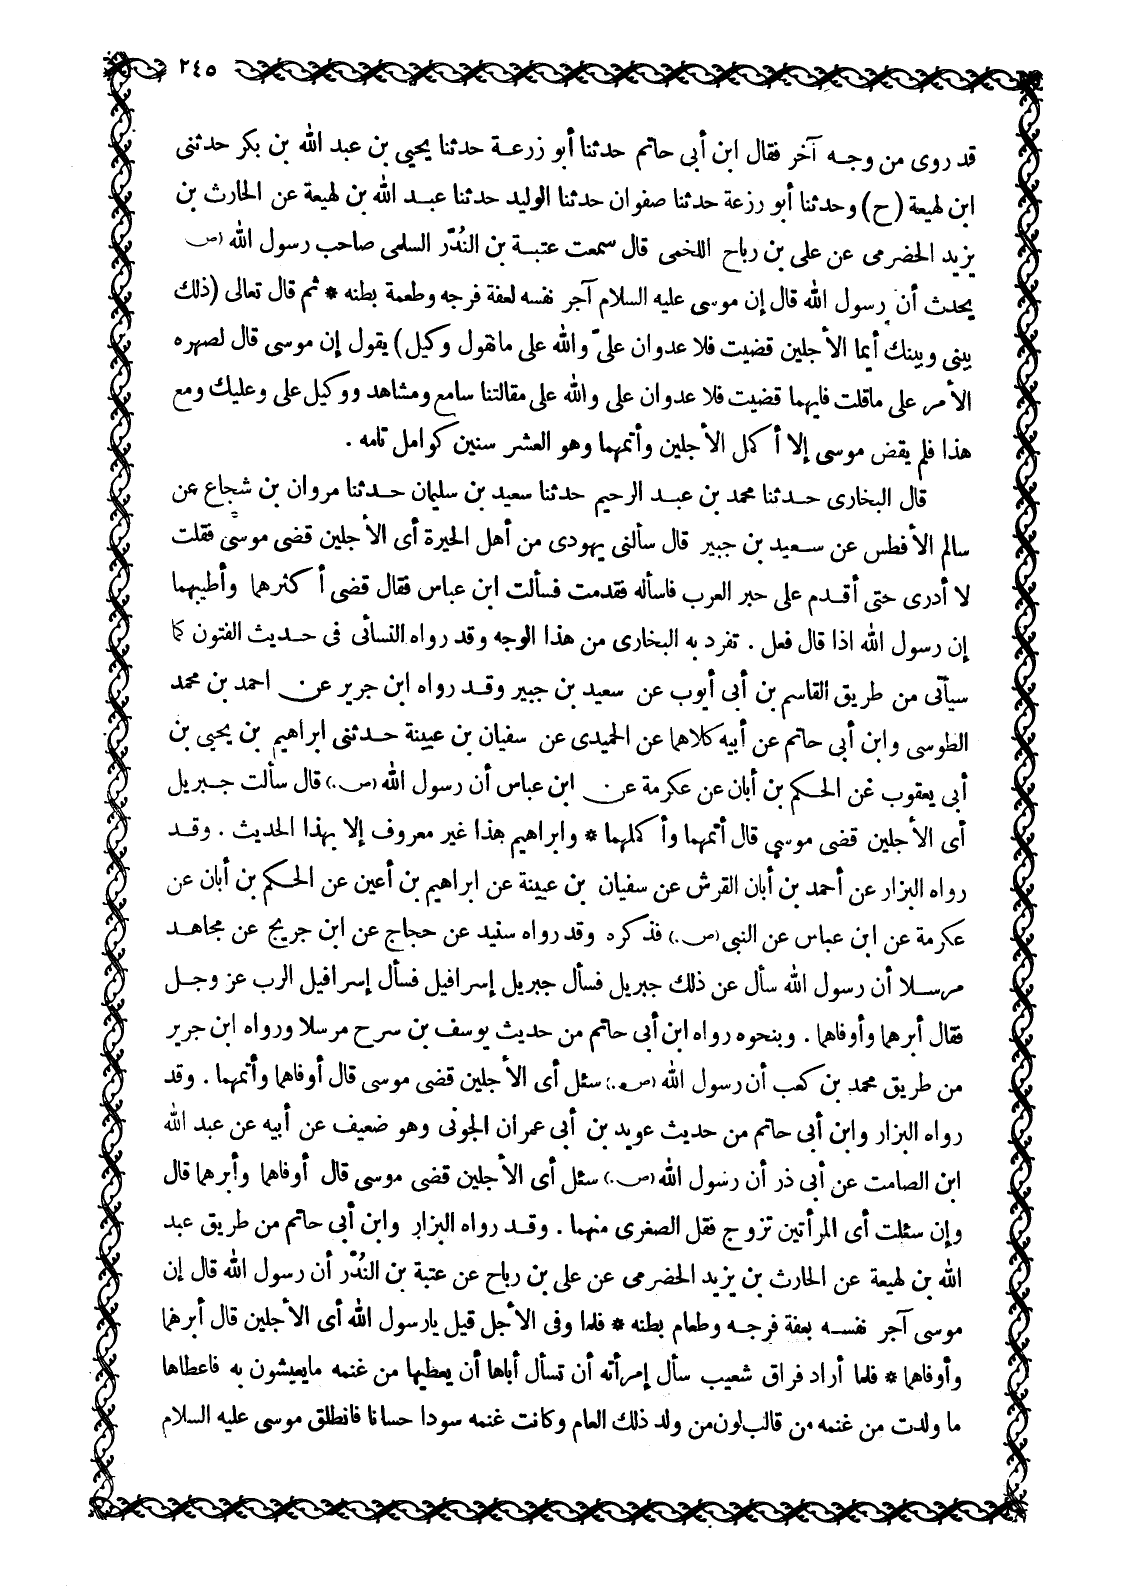 ٢٤٥
قد روى من وجه آخر فقال ابن أبى حاتم حدثنا أبو زرعة حدثنا يحيى بن عبد الله بن بكر حدثنى
ابن لهيعة (ح) وحدثنا أبو رزعة حدثنا صفوان حدثنا الوليد حدثنا عبد الله بن لهيعة عن الحارث بن
يزيد الحضرمى عن على بن رباح اللخمى قال سمعت عتبة بن النُدّر السلمى صاحب رسول الله (ص
يحدث أن رسول الله قال إن موسى عليه السلام آجر نفسه لعفة فرجه وطعمة بطنه * ثم قال تعالى (ذلك
بينى وبينك أيما الأجلين قضيت فلا عدوان علىّ والله على ما نقول وكيل) يقول إن موسى قال لصهره
الأمر على ماقلت فايهما قضيت فلا عدوان على والله على مقالتنا سامع ومشاهد ووكيل على وعليك ومع
هذا فلم يقض موسى إلا أكمل الأجلين وأتمهما وهو العشر سنين كوامل تامه .
قال البخارى حدثنا محمد بن عبد الرحيم حدثنا سعيد بن سليمان حدثنا مروان بن شجاع عن
سالم الأفطس عن سعيد بن جبير قال سألنى يهودى من أهل الحيرة أى الأجلين قضى موسى فقلت
لا أدرى حتى أقدم على حبر العرب فاسأله فقدمت فسألت ابن عباس فقال قضى أكثرهما وأطيبهما
إن رسول الله اذا قال فعل . تفرد به البخارى من هذا الوجه وقد رواه النسائى فى حديث الفتون كما
سيأتى من طريق القاسم بن أبى أيوب عن سعيد بن جبير وقد رواه ابن جرير عن احمد بن محمد
الطوسى وابن أبى حاتم عن أبيه كلاهما عن الحميدى عن سفيان بن عيينة حدثنى ابراهيم بن يحيى بن
أبى يعقوب عن الحكم بن أبان عن عكرمة عن ابن عباس أن رسول الله (ص.) قال سألت جبريل
أى الأجلين قضى موسى قال أتمهما وأكملهما * وابراهيم هذا غير معروف إلا بهذا الحديث . وقد
رواه البزار عن أحمد بن أبان القرش عن سفيان بن عيينة عن ابراهيم بن أعين عن الحكم بن أبان عن
عكرمة عن ابن عباس عن النبى (ص.) فذكره وقد رواه سنيد عن حجاج عن ابن جريج عن مجاهد
مرسلا أن رسول الله سأل عن ذلك جبريل فسأل جبريل إسرافيل فسأل إسرافيل الرب عز وجل
فقال أبرهما وأوفاهما . وبنحوه رواه ابن أبى حاتم من حديث يوسف بن سرح مرسلا ورواه ابن جرير
من طريق محمد بن كعب أن رسول الله (ص.) سئل أى الأجلين قضى موسى قال أوفاهما وأتمهما . وقد
رواه البزار وابن أبى حاتم من حديث عويد بن أبى عمران الجونى وهو ضعيف عن أبيه عن عبد الله
ابن الصامت عن أبى ذر أن رسول الله (ص.) سئل أى الأجلين قضى موسى قال أوفاهما وأبرهما قال
وإن سئلت أى المرأتين تزوج فقل الصغرى منهما . وقد رواه البزار وابن أبى حاتم من طريق عبد
الله بن لهيعة عن الحارث بن يزيد الحضرمى عن على بن رباح عن عتبة بن النُدّر أن رسول الله قال إن
موسى آجر نفسه بعفة فرجه وطعام بطنه * فلما وفى الأجل قيل يارسول الله أى الأجلين قال أبرهما
وأوفاهما * فلما أراد فراق شعيب سأل إمرأته أن تسأل أباها أن يعطيها من غنمه مايعيشون به فاعطاها
ما ولدت من غنمه من قالب لون من ولد ذلك العام وكانت غنمه سودا حسانا فانطلق موسى عليه السلام